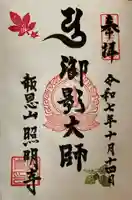 奉拝
令和七年十月十四日
御影大師
報恩山 照明寺